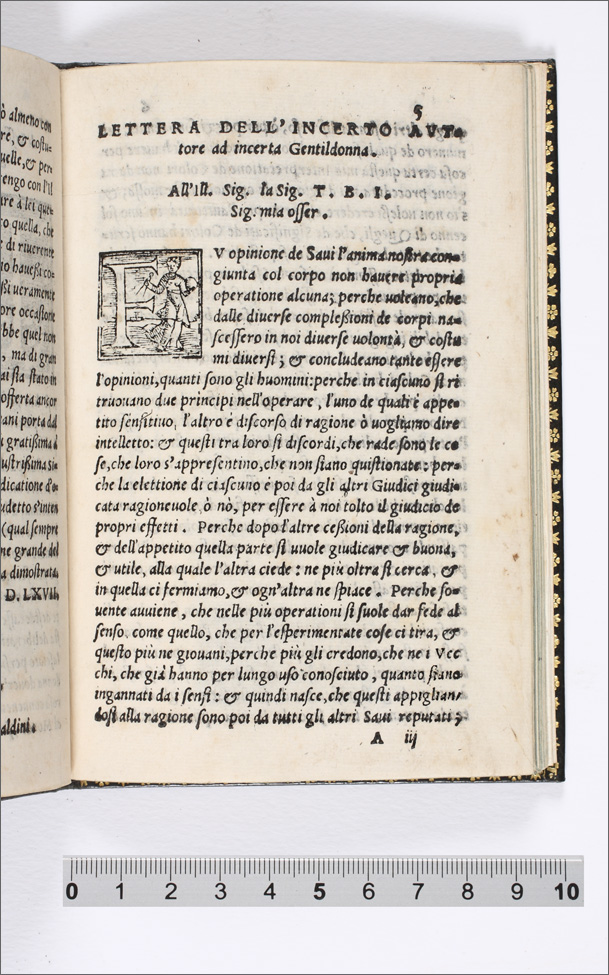 ò almeno con
re, & costu-
uelle, & per-
engo con l'Il
re à lei que-
o quella, che
di riuerente
o hauessi co-
ßi ueramente
ore occasione
bbe quel non
, ma di gran
ai sta stato in
offerta ancor
ani porta dal
gratißima à
ustrißima Si-
dicatione d'o-
udetto s'inten
(qual sempre
ne grande del
a dimostrata.
D. LXVII.
aldini.
5
LETTERA DELL'INCERTO AVT-
tore ad incerta Gentildonna.
All'Ill. Sig. la Sig. T. B. I.
Sig. mia osser.
F V opinione de Saui l'anima nostra con-
giunta col corpo non hauere propria
operatione alcuna; perche uoleano, che
dalle diuerse compleßioni de corpi na-
scessero in noi diuerse uolontà, & costu
mi diuersi; & concludeano tante essere
l'opinioni, quanti sono gli huomini: perche in ciascuno si ri
truouano due principi nell'operare, l'uno de quali è appe-
tito sensitiuo, l'altro è discorso di ragione ò uogliamo dire
intelletto: & questi tra loro si discordi, che rade sono le co
se, che loro s'appresentino, che non siano quistionate: per-
che la elettione di ciascuno è poi da gli altri Giudici giudi-
cata ragioneuole ò nò, per essere à noi tolto il giudicio de
propri effetti. Perche dopo l'altre ceßioni della ragione,
& dell'appetito quella parte si uuole giudicare & buona,
& utile, alla quale l'altra ciede: ne più oltra si cerca, &
in quella ci fermiamo, & ogn'altra ne spiace. Perche so-
uente auuiene, che nelle più operationi si suole dar fede al
senso come quello, che per l'esperimentate cose ci tira, &
questo più ne giouani, perche più gli credono, che ne i Vec
chi, che già hanno per lungo uso conosciuto, quanto siano
ingannati da i sensi: & quindi nasce, che questi appiglian-
dosi alla ragione sono poi da tutti gli altri Saui reputati;
A iij
0 1 2 3 4 5 6 7 8 9 10